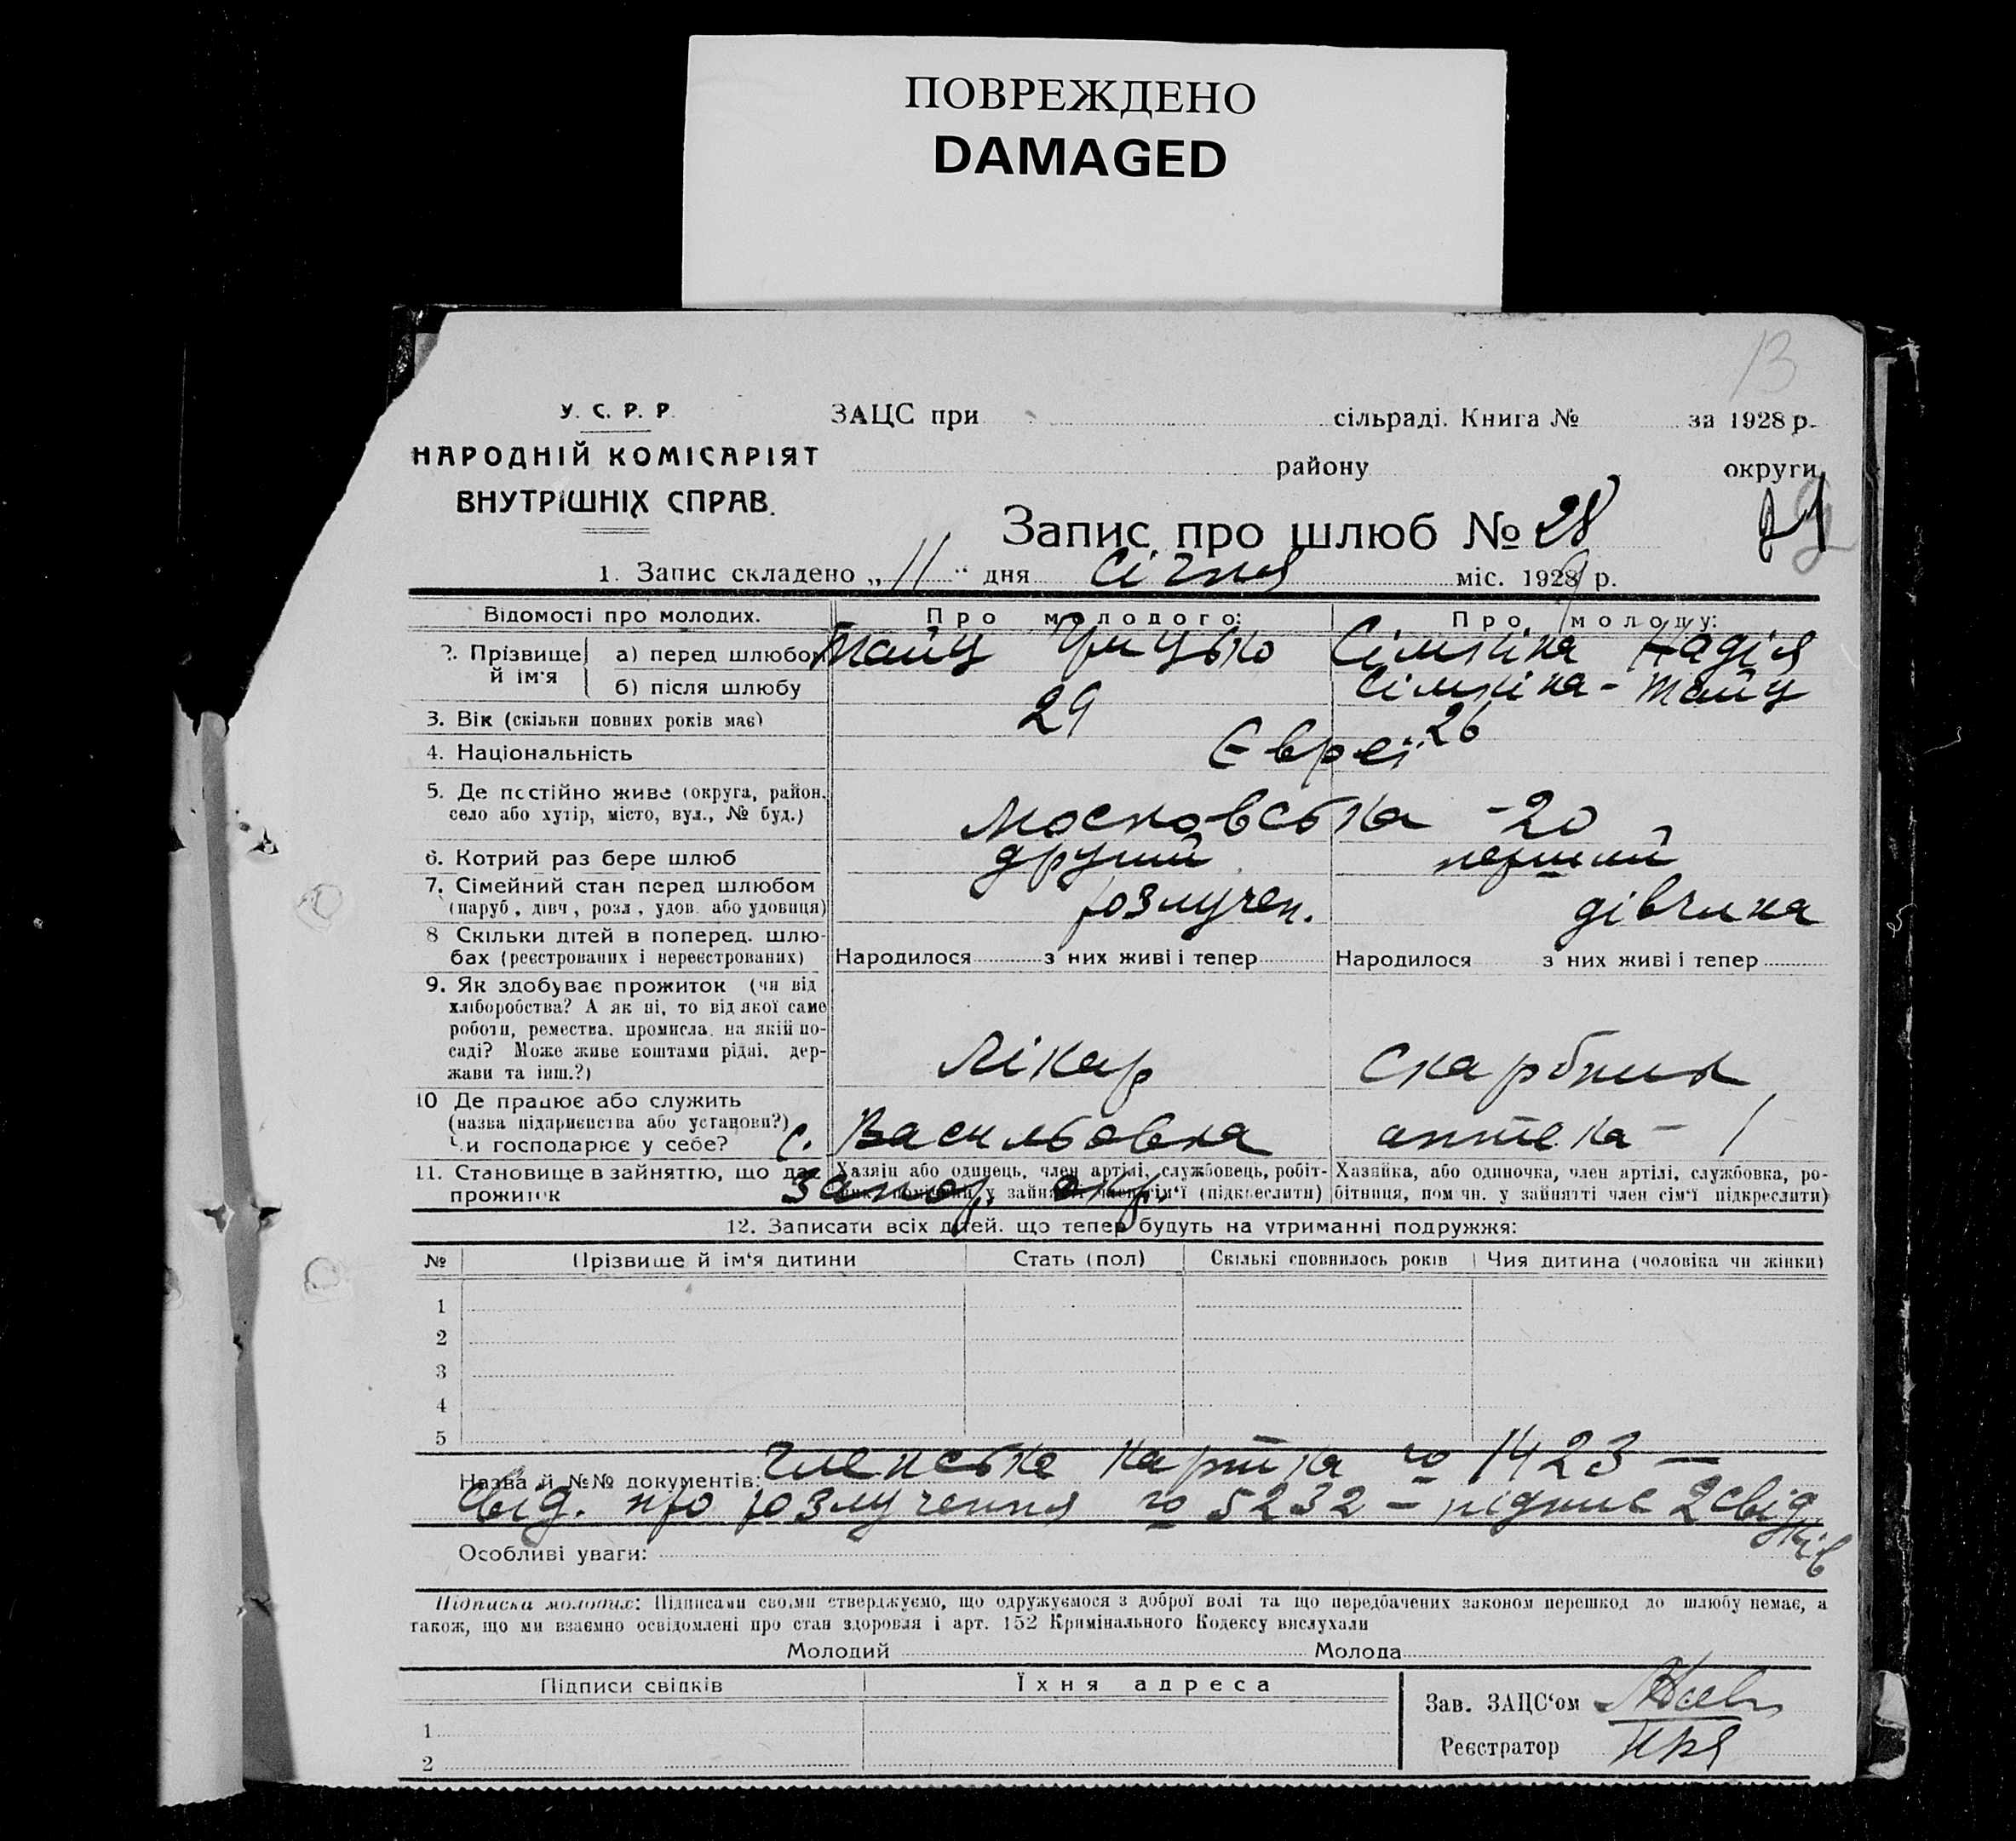 ПОВРЕЖДЕНО
DAMAGED
13
У. С. Р. Р.
НАРОДНІЙ КОМІСАРІЯТ
ВНУТРІШНІХ СПРАВ.
ЗАЦС при сільраді. Книга № за 1928 р.
району округи
Запис про шлюб № 28
1. Запис складено „ 11 “ дня Січня міс. 1929 р.
Відомості про молодих. Про молодого: Про молоду:
2. Прізвище й ім'я а) перед шлюбом Тайц Грицько Сімкіна Надія
б) після шлюбу Сімкіна - Тайц
3. Вік (скільки повних років має) 29 26
4. Національність Євреї
5. Де постійно живе (округа, район,
село або хутір, місто, вул., № буд.) Московська - 20
6. Котрий раз бере шлюб другий перший
7. Сімейний стан перед шлюбом
(паруб., дівч., розл., удов. або удовиця) розлучен. дівчина
8 Скільки дітей в поперед. шлю-
бах (реєстрованих і нереєстрованих) Народилося з них живі і тепер Народилося з них живі і тепер
9. Як здобуває прожиток (чи від
хліборобства? А як ні, то від якої саме
роботи, ремества, промисла, на якій по-
саді? Може живе коштами рідні, дер-
жави та інш.?) Лікар Скарбник
10 Де працює або служить
(назва підприємства або установи?)
Чи господарює у себе? с. Васильовка аптека - 1
11. Становище в зайняттю, що дає Хазяїн або одинець, член артілі, службовець, робіт- Хазяйка, або одиночка, член артілі, службовка, ро-
прожиток Запор. окр. у зайнятті член сім'ї (підкреслити) бітниця, пом чн. у зайнятті член сім'ї підкреслити)
12. Записати всіх дітей, що тепер будуть на утриманні подружжя:
№ Прізвище й ім'я дитини Стать (пол) Скількі сповнилось років Чия дитина (чоловіка чи жінки)
1
2
3
4
5
Назва й №№ документів: Членська картка № 1423 -
свід. про розлучення № 5232 - підпис 2 свідків
Особливі уваги:
Підписка молодих: Підписами своїми стверджуємо, що одружуємося з доброї волі та що передбачених законом перешкод до шлюбу немає, а
також, що ми взаємно освідомлені про стан здоровля і арт. 152 Кримінального Кодексу вислухали
Молодий Молода
Підписи свідків Їхня адреса
Зав. ЗАЦС'ом
1
Реєстратор
2